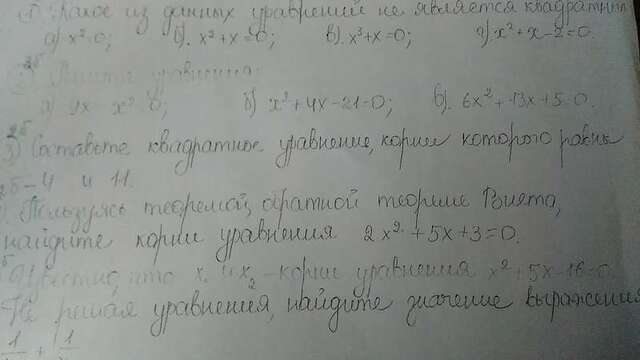 1) Какое из данных уравнений не является квадратным
а) x²=0; б). x²+x=0; в). x³+x=0; г). x²+x-2=0.
2) Решите уравнения:
а) 9x - x²=0; б) x²+4x-21=0; в). 6x²+13x+5=0.
3) Составьте квадратное уравнение, корни которого равны
-4 и 11.
Пользуясь теоремой, обратной теореме Виета,
найдите корни уравнения 2x²+5x+3=0.
Известно, что x₁ и x₂ - корни уравнения x²+5x-16=0.
Не решая уравнения, найдите значение выражения
1 + 1